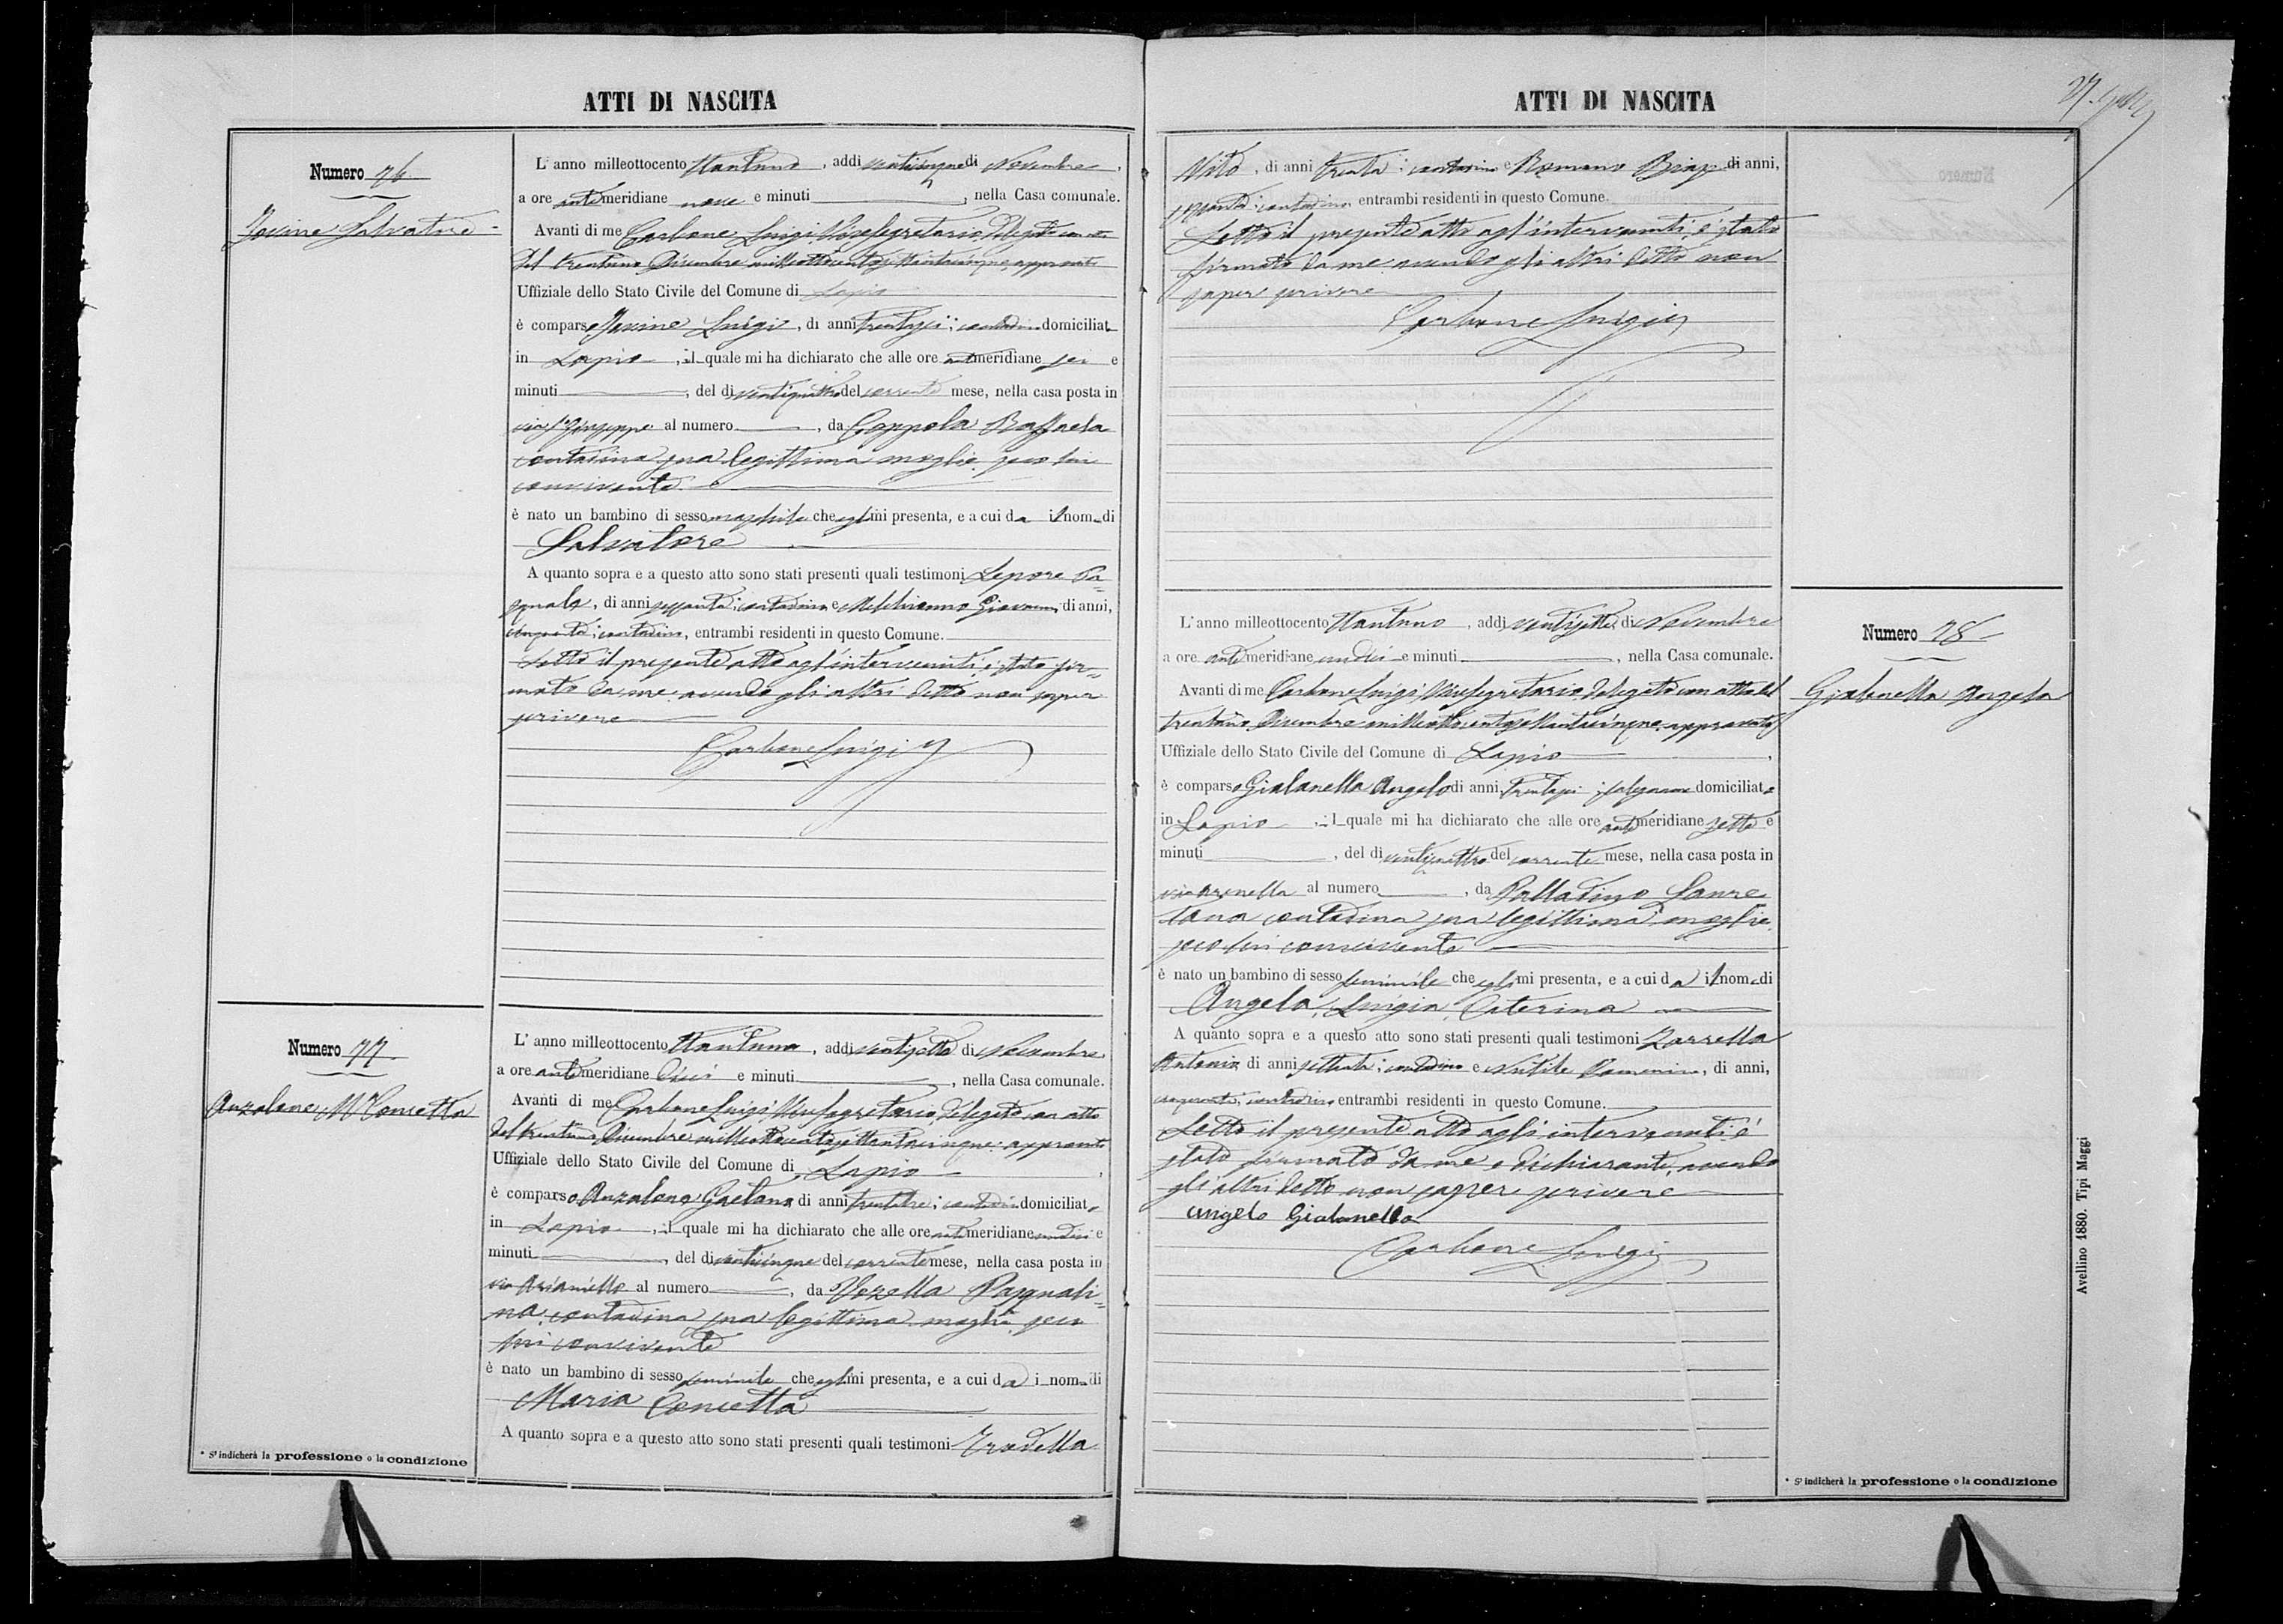 ATTI DI NASCITA
Numero 76
Iovine Salvatore
L'anno milleottocento ottantuno, addì venticinque di Novembre,
a ore antimeridiane nove e minuti , nella Casa comunale.
Avanti di me Carbone Luigi Vicesegretario, delegato con atto
del trentuno Dicembre milleottocentosettantacinque, approvato
Uffiziale dello Stato Civile del Comune di Lapio
è comparso Iovine Luigi, di anni trentasei; contadino domiciliat
in Lapio, il quale mi ha dichiarato che alle ore antimeridiane sei e
minuti , del dì ventiquattro del corrente mese, nella casa posta in
via S. Giuseppe al numero , da Coppola Raffaela
contadina sua legittima moglie seco lui
convivente
è nato un bambino di sesso maschile che egli mi presenta, e a cui da il nom di
Salvatore
A quanto sopra e a questo atto sono stati presenti quali testimoni Lepore Pa=
squale, di anni sessanta; contadino e Melchionno Giovanni, di anni,
cinquanta; contadino, entrambi residenti in questo Comune.
Letto il presente atto agl'intervenuti, è stato fir=
mato da me avendo gli altri detto non saper
scrivere
Carbone Luigi
Numero 77.
Anzalone Mª Concetta
L'anno milleottocento ottantuno, addì ventisette di Novembre
a ore antimeridiane dieci e minuti , nella Casa comunale.
Avanti di me Carbone Luigi Vicesegretario, delegato con atto
del trentuno Dicembre milleottocentosettantacinque, approvato
Uffiziale dello Stato Civile del Comune di Lapio
è comparso Anzalone Gaetano, di anni trentatre; contadino domiciliat
in Lapio, il quale mi ha dichiarato che alle ore antimeridiane undici e
minuti , del dì venticinque del corrente mese, nella casa posta in
via Arianiello al numero , da Vozella Pasquali=
na, contadina sua legittima moglie seco
lui convivente
è nato un bambino di sesso feminile che egli mi presenta, e a cui da i nom di
Maria Concetta
A quanto sopra e a questo atto sono stati presenti quali testimoni Trodella
* S'indicherà la professione o la condizione
ATTI DI NASCITA
Vito, di anni trenta; contadino e Romano Biagio di anni,
sessanta; contadino, entrambi residenti in questo Comune.
Letto il presente atto agl'intervenuti, è stato
firmato da me avendo gli altri detto non
saper scrivere
Carbone Luigi
L'anno milleottocento ottantuno, addì ventisette di Novembre
a ore antimeridiane undici e minuti , nella Casa comunale.
Avanti di me Carbone Luigi, Vicesegretario, delegato con atto del
trentuno Dicembre milleottocentosettantacinque, approvato
Uffiziale dello Stato Civile del Comune di Lapio
è comparso Gialanella Angelo di anni trentasei; falegname domiciliato
in Lapio, il quale mi ha dichiarato che alle ore antimeridiane sette e
minuti , del dì ventiquattro del corrente mese, nella casa posta in
via Arenella al numero , da Palladino Laure
tana contadina sua legittima moglie,
seco lui convivente
è nato un bambino di sesso feminile che egli mi presenta, e a cui da il nom di
Angela, Luigia, Caterina
A quanto sopra e a questo atto sono stati presenti quali testimoni Zarrella
Antonio, di anni settanta; contadino e Nutile Domenico, di anni,
cinquanta; contadino entrambi residenti in questo Comune.
Letto il presente atto agl'intervenuti è
stato firmato da me e dichiarante, avendo
gli altri detto non saper scrivere
Angelo Gialanella
Carbone Luigi
Numero 78
Gialanella Angela
Avellino 1880. Tipi Maggi
* S'indicherà la professione o la condizione